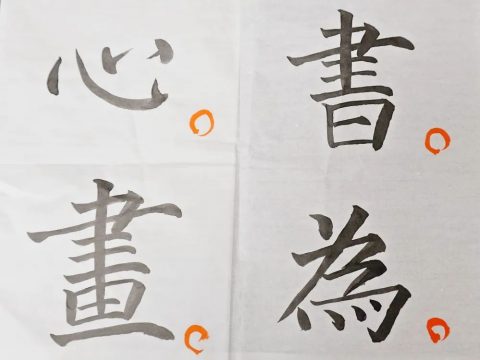 書為
心畫